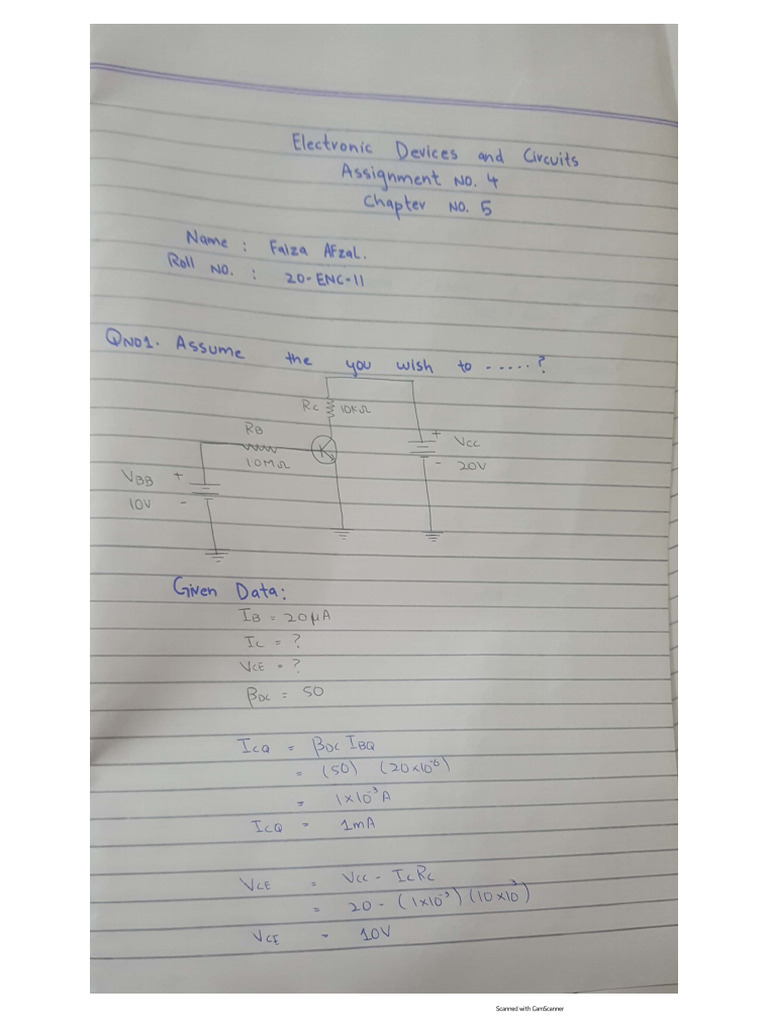 Electronic Devices and Circuits
Assignment NO. 4
Chapter NO. 5
Name : Faiza Afzal.
Roll NO. : 20-ENC-11
QNO1. Assume the you wish to .....?
RC 10KΩ
RB
10MΩ
+ VCC
- 20V
VBB +
10V -
Given Data:
IB = 20μA
IC = ?
VCE = ?
βDC = 50
ICQ = βDC IBQ
= (50) (20×10⁻⁶)
= 1×10⁻³A
ICQ = 1mA
VCE = VCC - ICRC
= 20 - (1×10⁻³) (10×10³)
VCE = 10V
Scanned with CamScanner